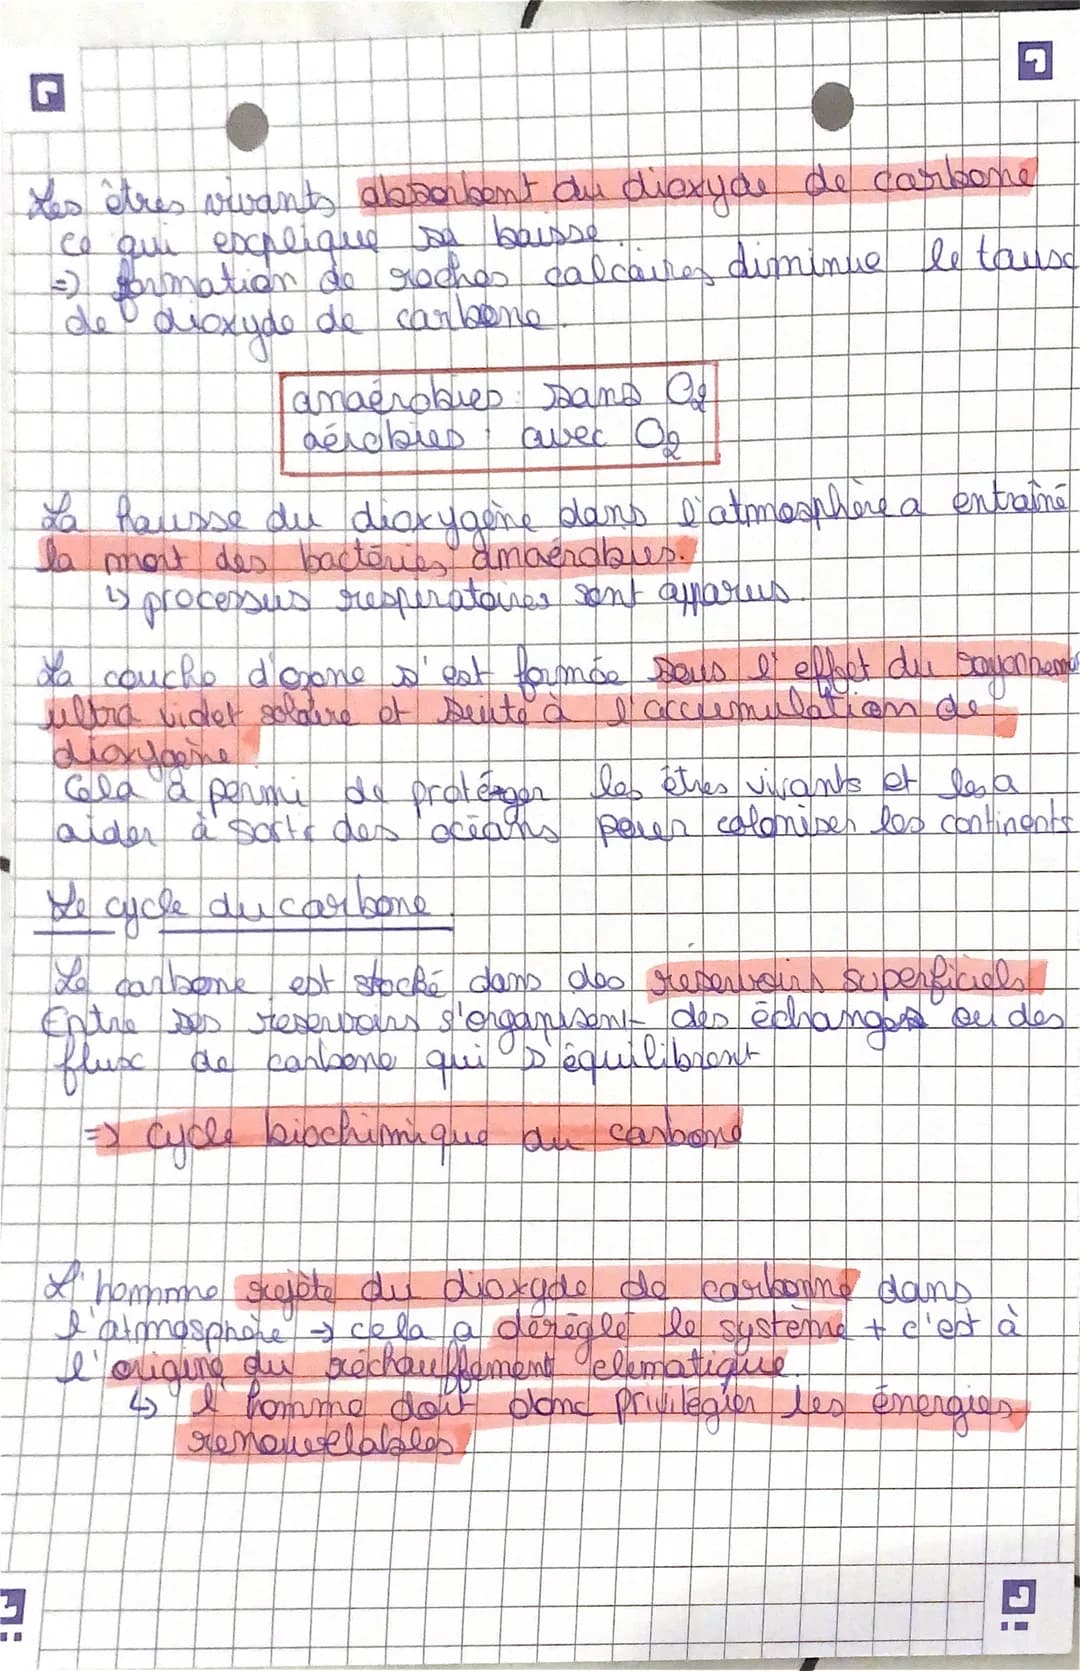 Les êtres vivants absorbent du dioxyde de carbone
ce qui explique sa baisse.
=> formation de roches calcaires diminue le taux
de dioxyde de carbone.
anaérobies : sans O2
aérobies : avec O2
La hausse du dioxygène dans l'atmosphère a entraîné
la mort des bactéries anaérobies.
↳ processus respiratoires sont apparus.
La couche d'ozone s'est formée sous l'effet du rayonnement
ultra violet solaire et suite à l'accumulation de
dioxygène
Cela a permi de protéger les êtres vivants et les a
aider à sortir des océans pour coloniser les continents
Le cycle du carbone
Le carbone est stocké dans des reservoirs superficiels.
Entre ses reservoirs s'organisent des échanges ou des
flux de carbone qui s'équilibrent
=> cycle biochimique du carbone
L'homme rejète du dioxyde de carbonne dans
l'atmosphère → cela a dérèglé le système + c'est à
l'origine du réchauffement climatique.
↳ l'homme doit donc privilégier les énergies
renouvelables.